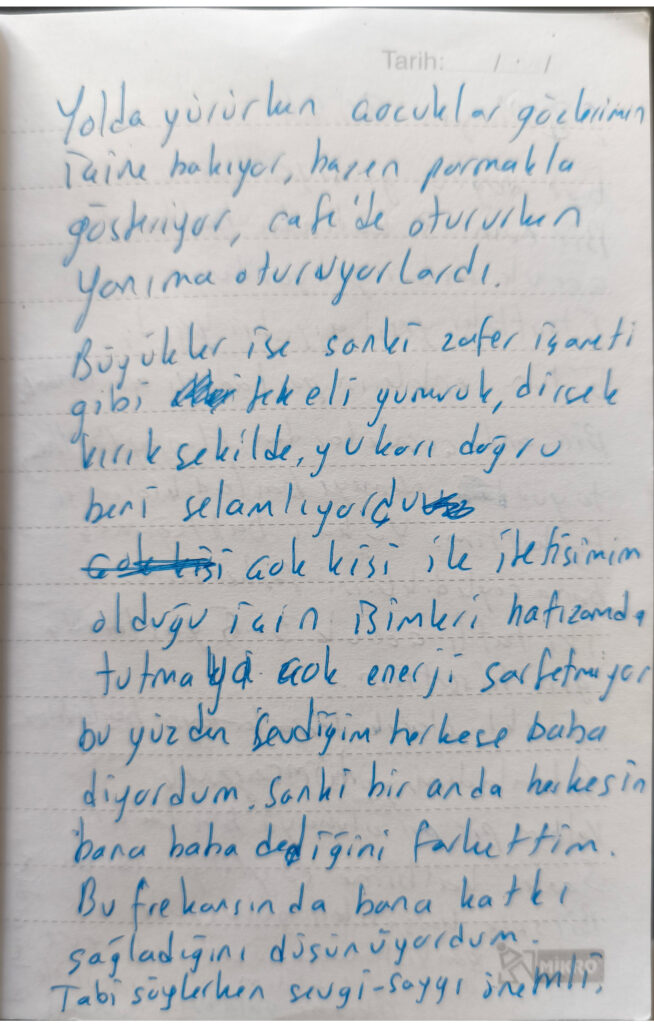 Tarih: / . /
Yolda yürürken çocuklar gözlerimin
içine bakıyor, bazen parmakla
gösteriyor, cafe'de otururken
yanıma oturuyorlardı.
Büyükler ise sanki zafer işareti
gibi tek eli yumruk, dirsek
kırık şekilde, yukarı doğru
beni selamlıyordu
çok kişi çok kişi ile iletişimim
olduğu için isimleri hafızamda
tutmaya çok enerji sarfetmiyor
bu yüzden sevdiğim herkese baba
diyordum. Sanki bir anda herkesin
bana baba dediğini farkettim.
Bu frekansında bana katkı
sağladığını düşünüyordum.
MİKRO
Tabi söylerken sevgi-saygı önemli.